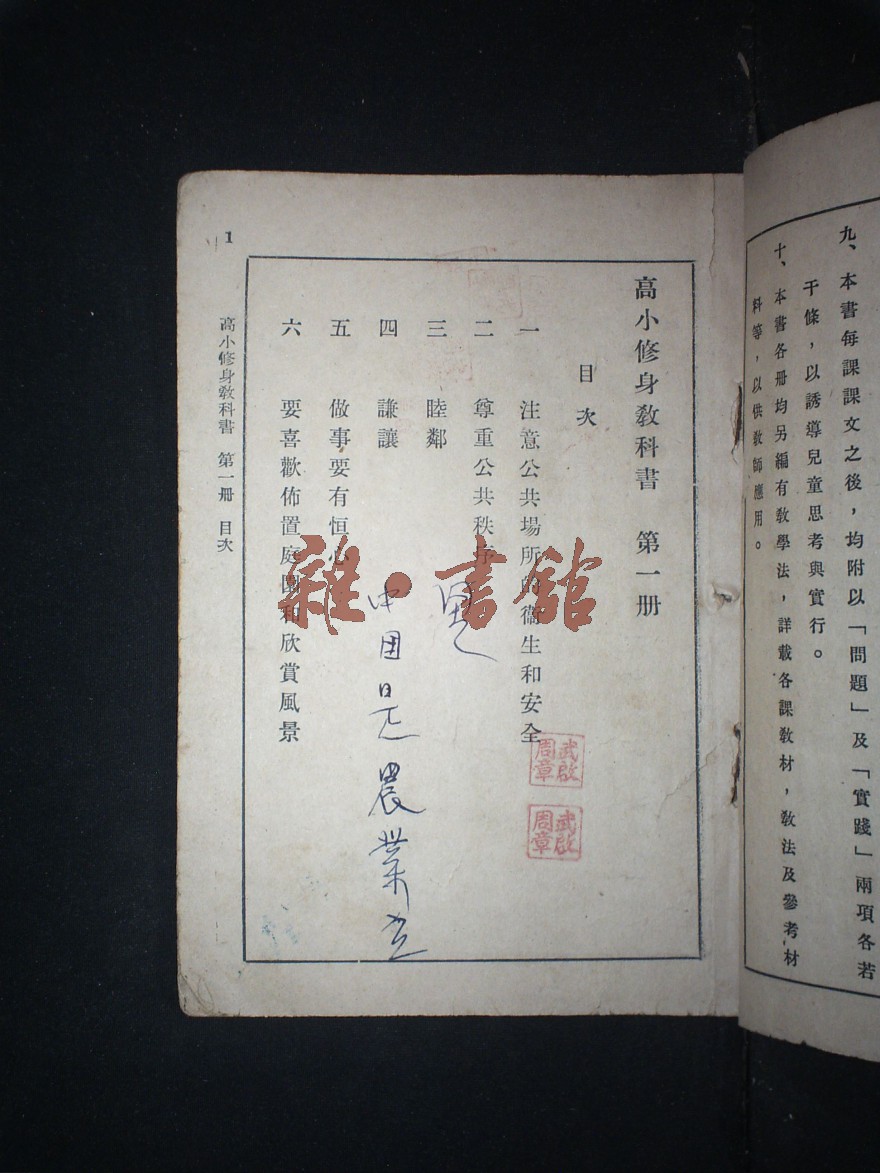 九、本書每課課文之後，均附以「問題」及「實踐」兩項各若
干條，以誘導兒童思考與實行。
十、本書各册均另編有教學法，詳載各課教材，教法及參考材
料等，以供教師應用。
高小修身教科書　第一册
目次
一　注意公共場所的衞生和安全
二　尊重公共秩序
三　睦鄰
四　謙讓
五　做事要有恒心
六　要喜歡佈置庭園和欣賞風景
中国是農業立
武啟周章
武啟周章
雜·書館
1
高小修身教科書　第一册　目次